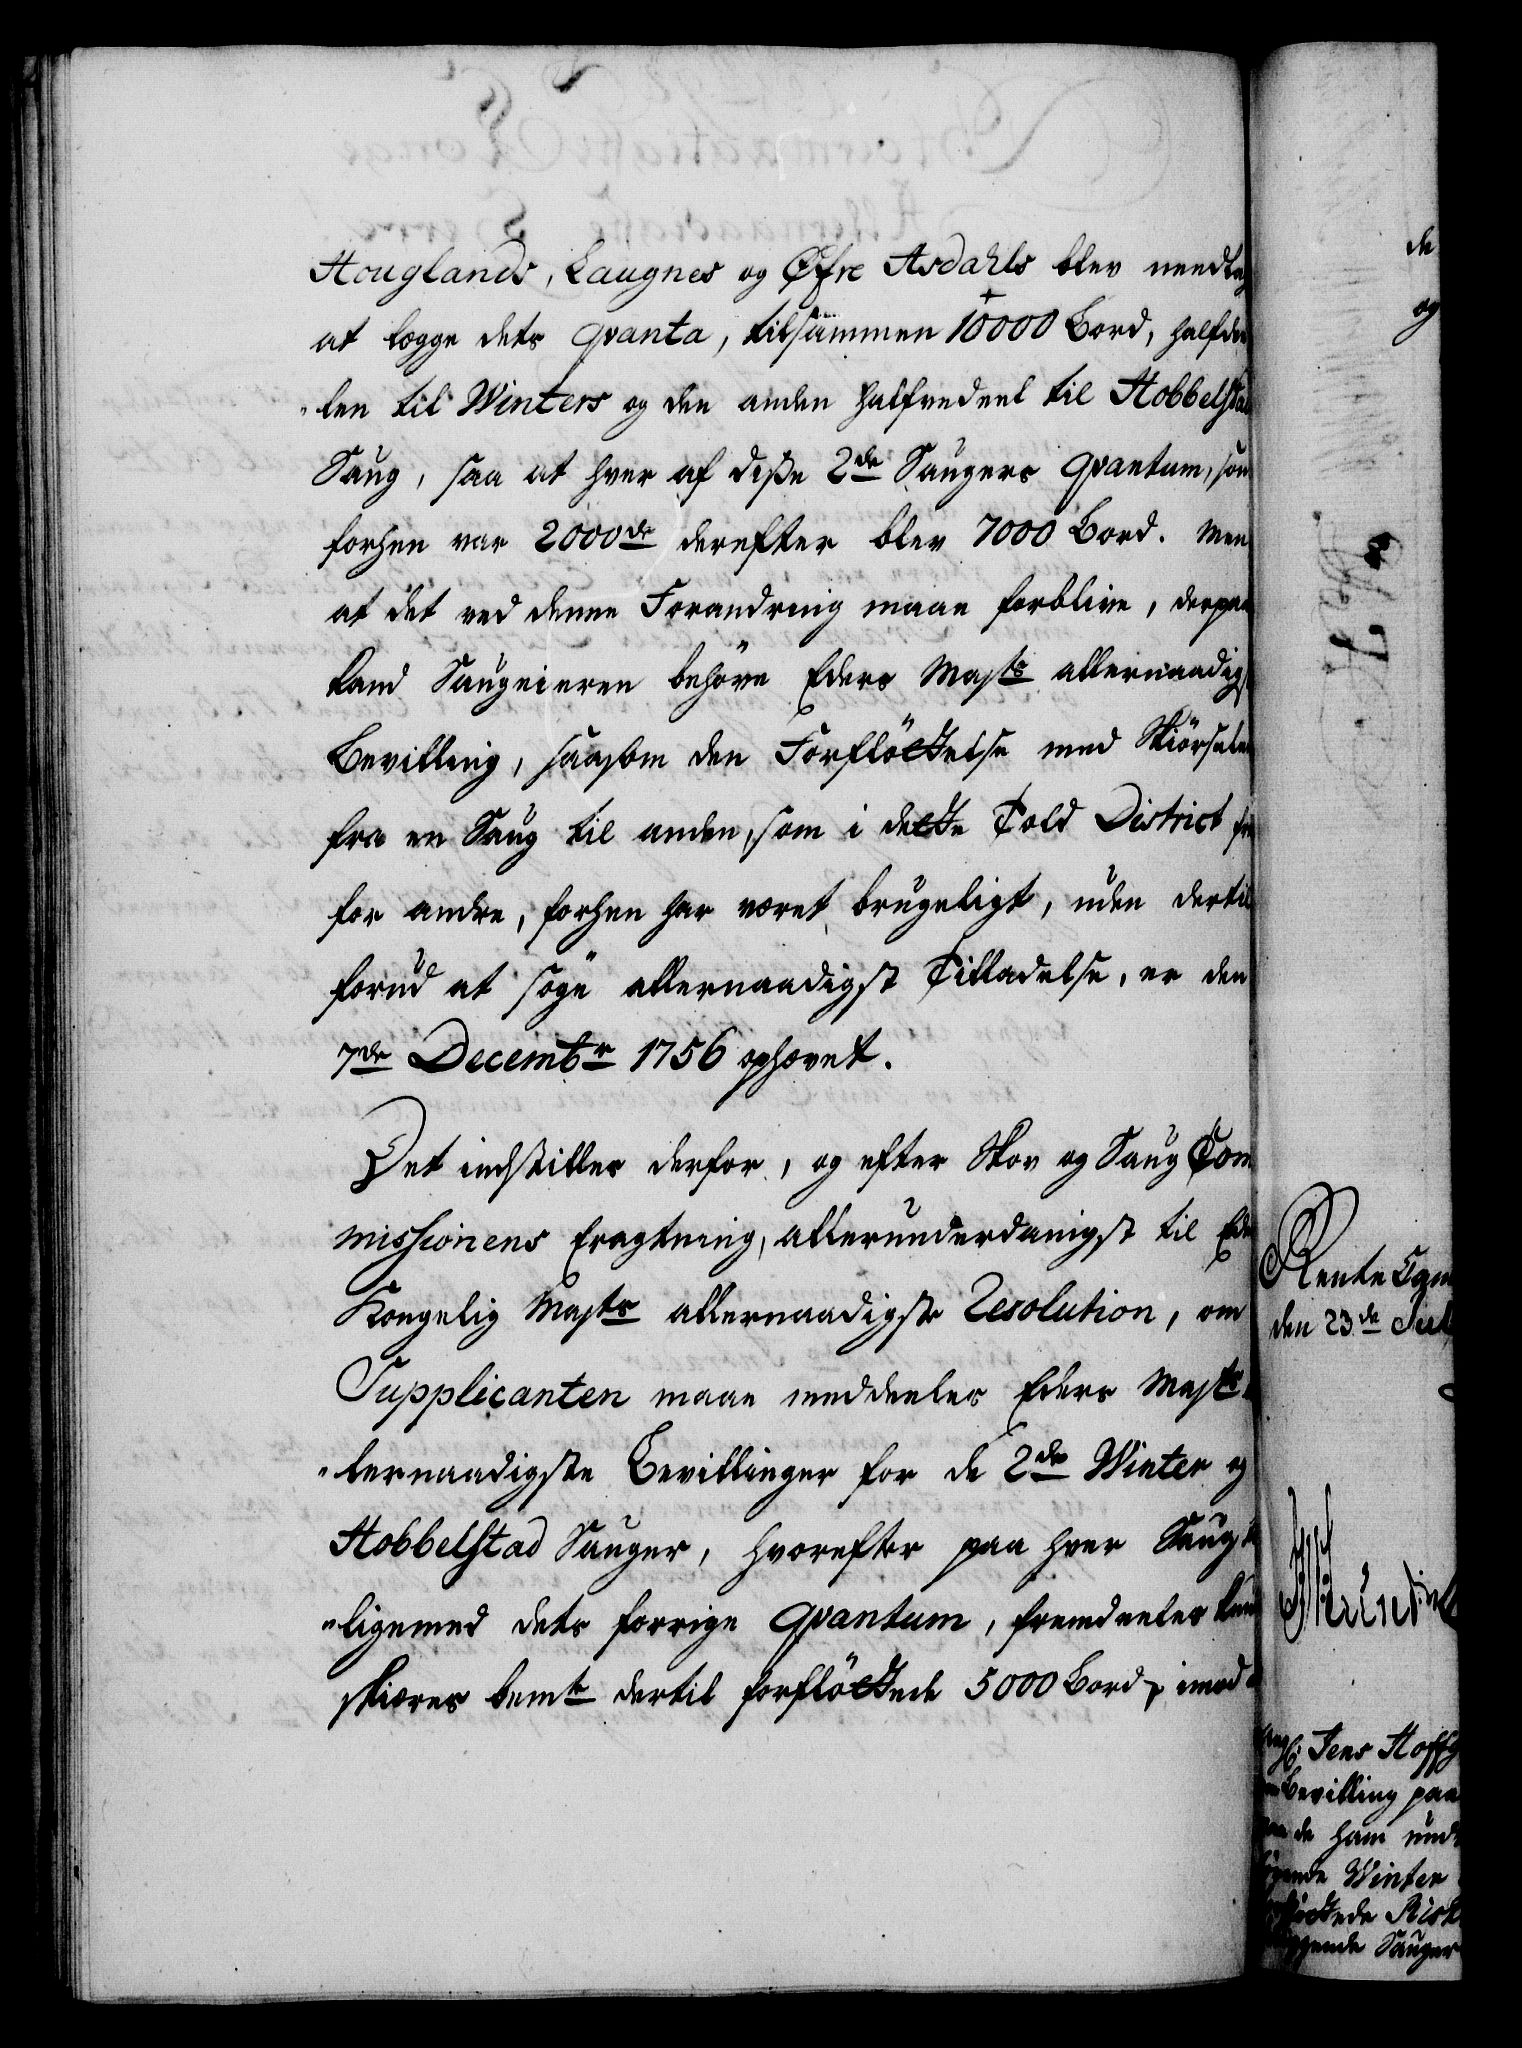 Houglands, Laugnes og Øfre Asdahls blev needlag
at legge dets qvanta, tilsammen 10000 Bord, halfdee
"len til Winters og den anden halfvedeel til Hobbelstad
Saug, saa at hver af disse 2de Saugers qvantum, som
forhen var 2000de derefter blev 7000 Bord. Men
at det ved denne Forandring maae forblive, derpaa
kand Saugeieren behöve Eders Majts allernaadigst
Bevilling, saasom den Forflöttelse med Skiörselen
fra en Saug til anden, som i dette Told District
for andre, forhen har været brugeligt, uden dertil
forud at söge allernaadigst Tilladelse, er den
7de Decembr 1756 ophævet.
Det indstilles derfor, og efter Skov og Saug Com
missionens Eragtning, allerunderdanigst til Eders
Kongelig Majts allernaadigste Resolution, om
Supplicanten maae meddeeles Eders Majts
"lernaadigste Bevillinger for de 2de Winter og
Hobbelstad Sauger, hvorefter paa hver Saug
"ligemed dets forrige qvantum, fremdeeles kand
skiæres bemte dertil forflöttede 5000 Bord, imod
de
og
Rente
den 23de Jul
Jens Hoff
Bevilling paa
de ham und
Winter
Sauger